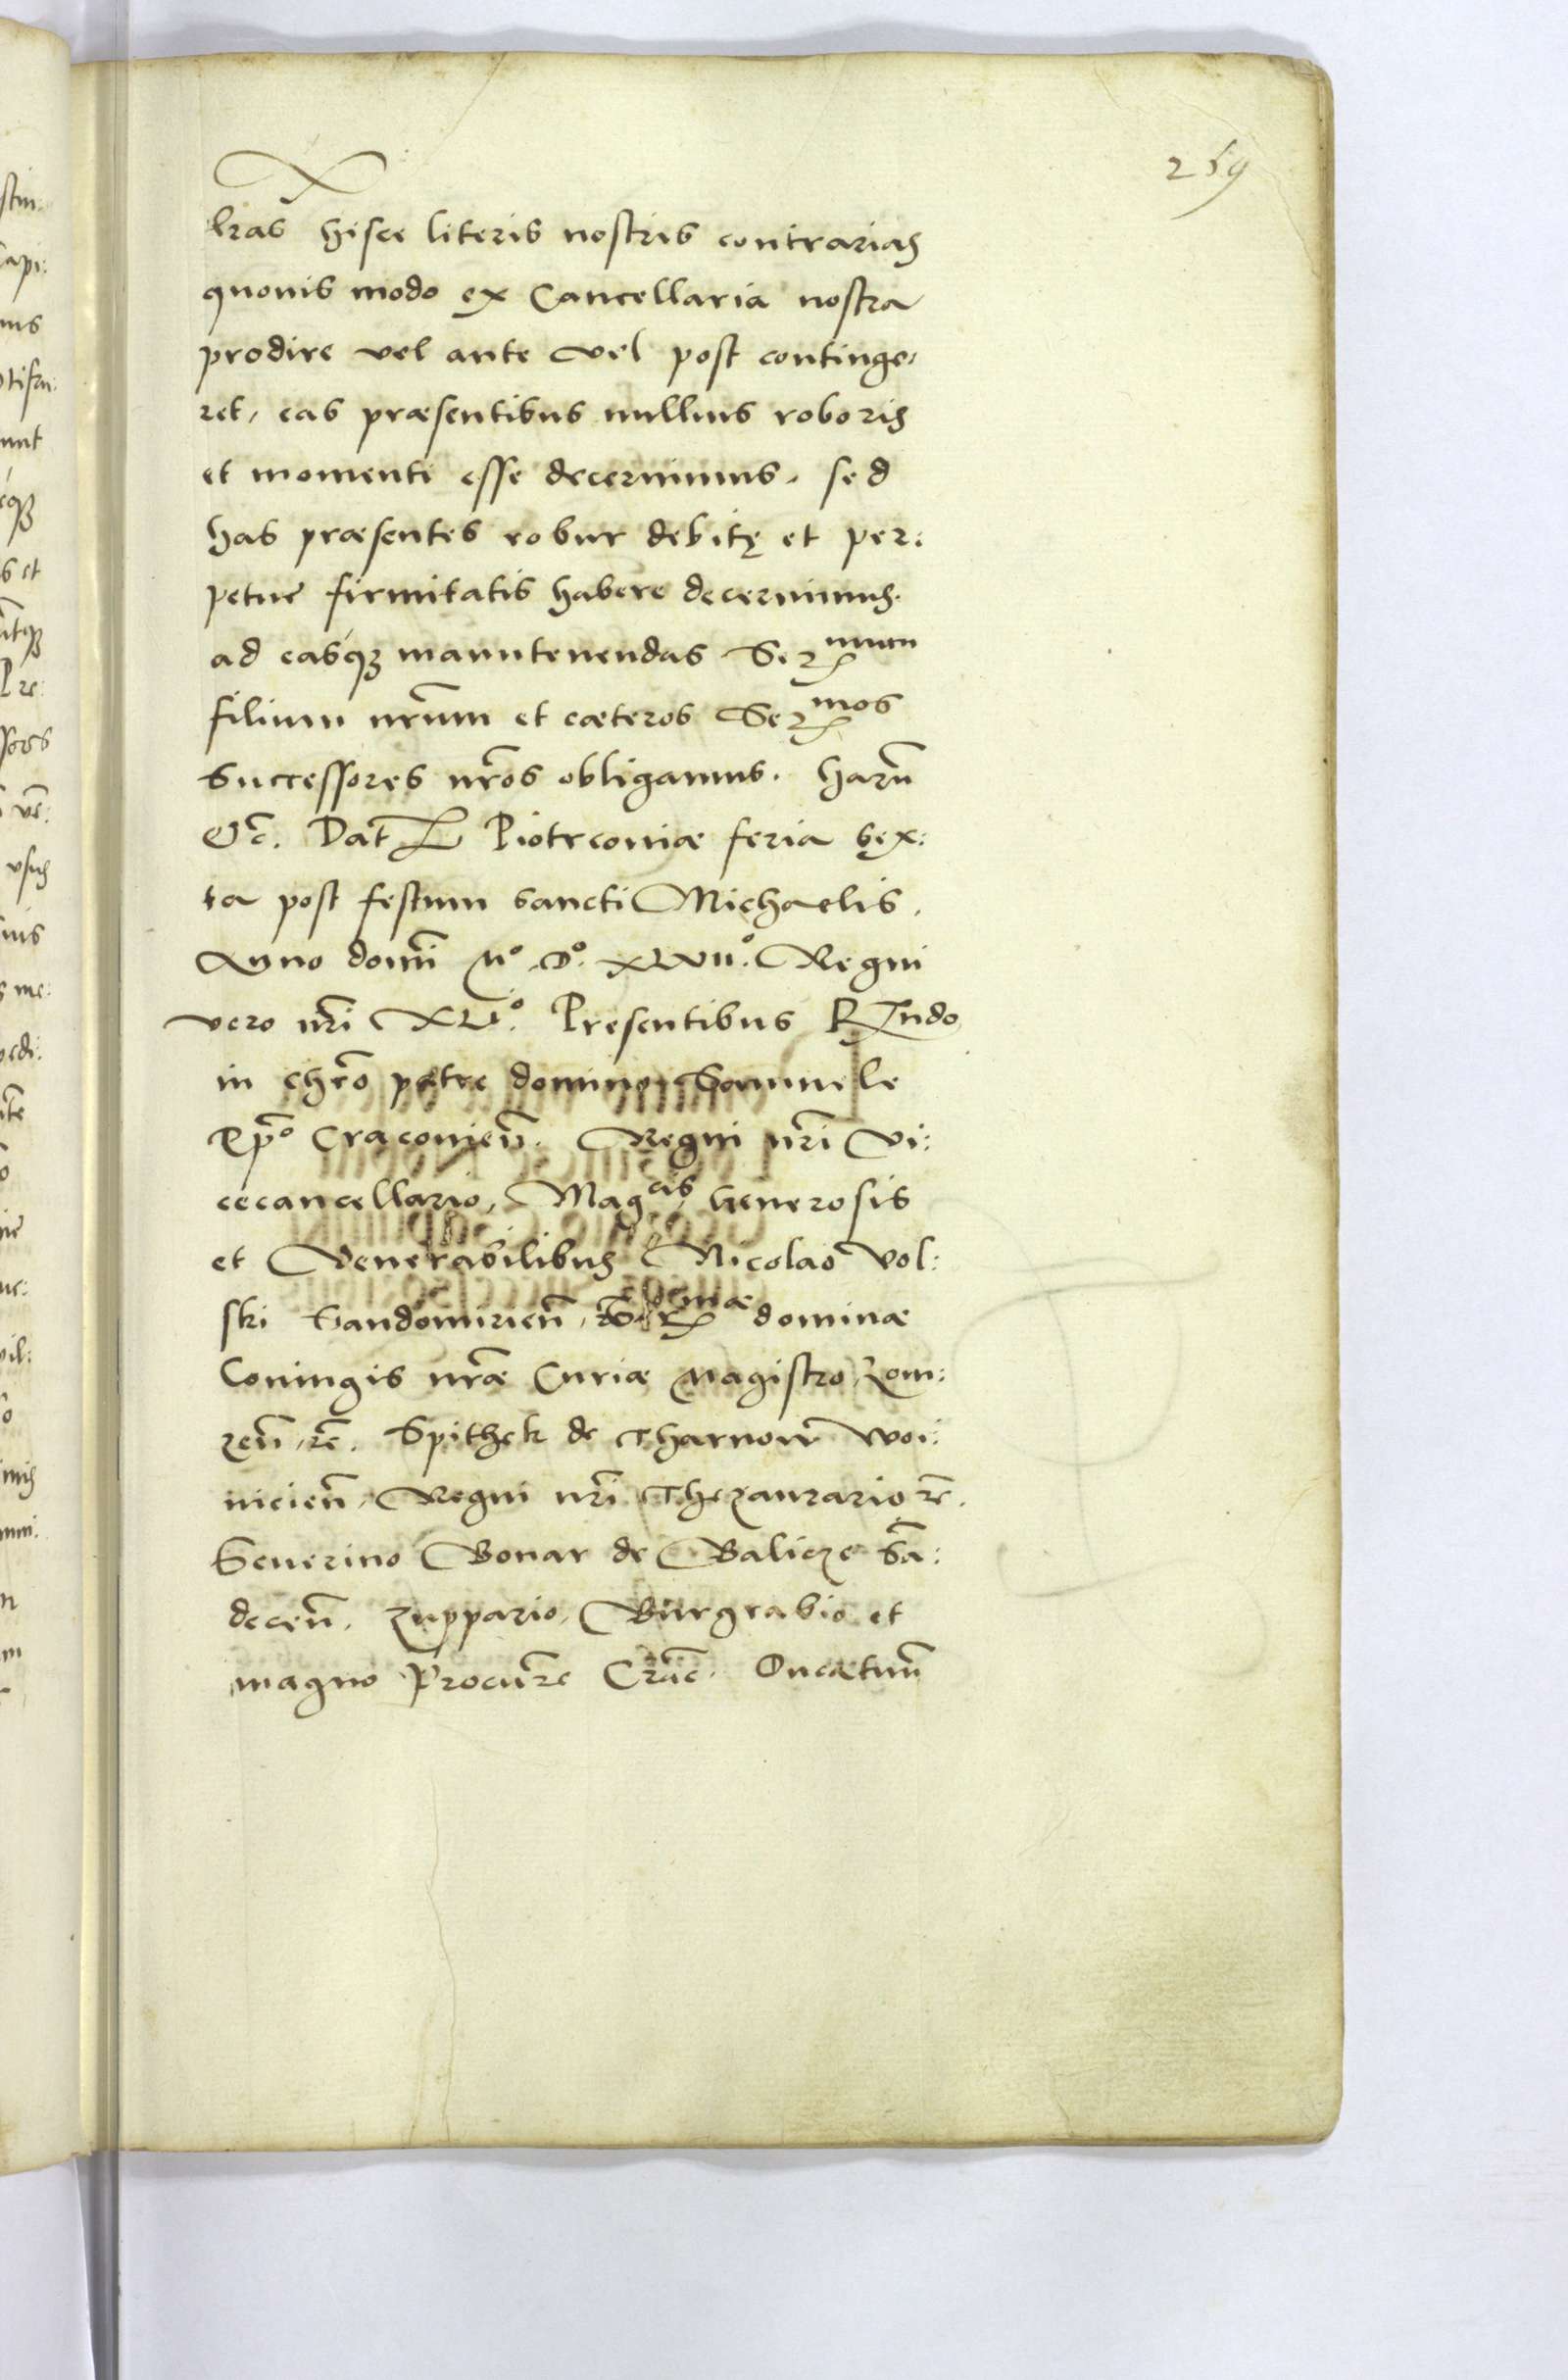 259
lras hisce literis nostris contrarias
quouis modo ex Cancellaria nostra
prodire vel ante vel post continge,
ret, eas præsentibus nullius roboris
et momenti esse decernimus. sed
has præsentes robur debitę et per:
petue firmitatis habere decernimus.
ad easq́ꝫ manutenendas Sermum
filium nr̃um et cæteros Sermos
Successores nr̃os obligamus. Harũ
&c̃. Dat Piotrconiæ feria sex:
ta post festum sancti Michaelis.
Anno domĩ Mº. Dº. XLVIIº. Regni
vero nr̃i XLIº. Presentibus Rndo
in chr̃o patre domino Samuele
Ep̃o Cracouieñ. Regni nr̃i Vi:
cecancellario, Magcis, Generosis
et Venerabilibus Nicolao Vol:
ski Sandomirieñ, Sermæ dominæ
Coniugis nr̃æ Curiæ Magistro, Lom:
zeñ, rc̃. Spithek de Tharnow Woi:
nicieñ, Regni nr̃i Thezaurario rc̃.
Seuerino Bonar de Balicze Sã:
deceñ. Zuppario, Burgrabio et
magno Procurr̃e Crãc. Oucætuũ